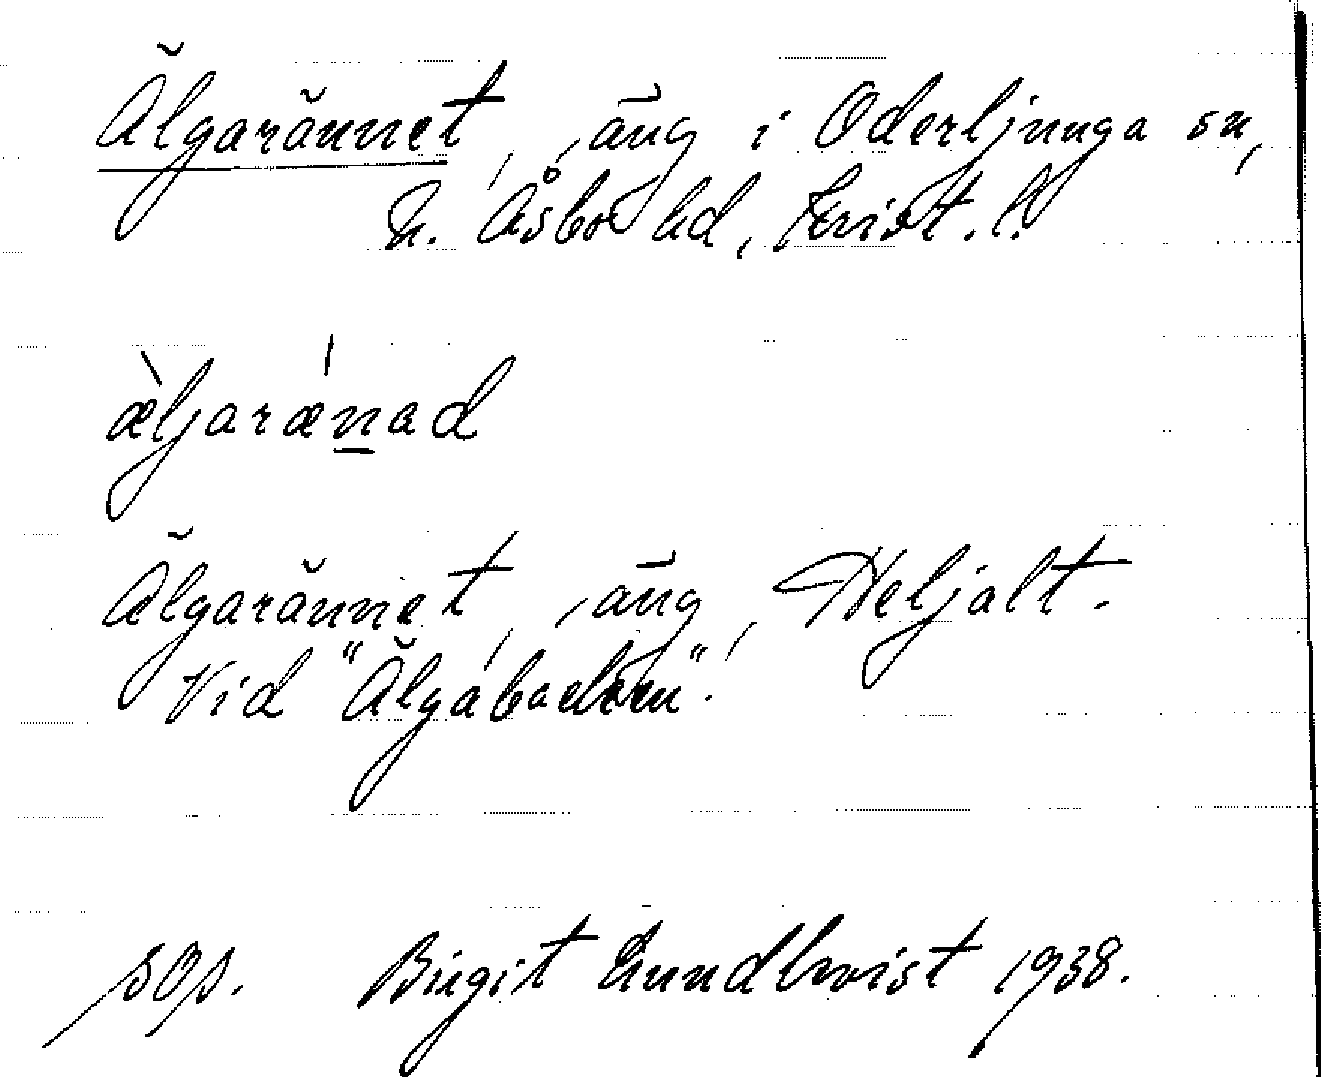 Älgarännet, äng i Oderljunga sn,
N. Åsbo hd, Krist. l.
æ̀ljarǽnad
Älgarännet, äng, Heljalt.
Vid "Älgabacken".
sop. Birgit Lundkvist 1938.